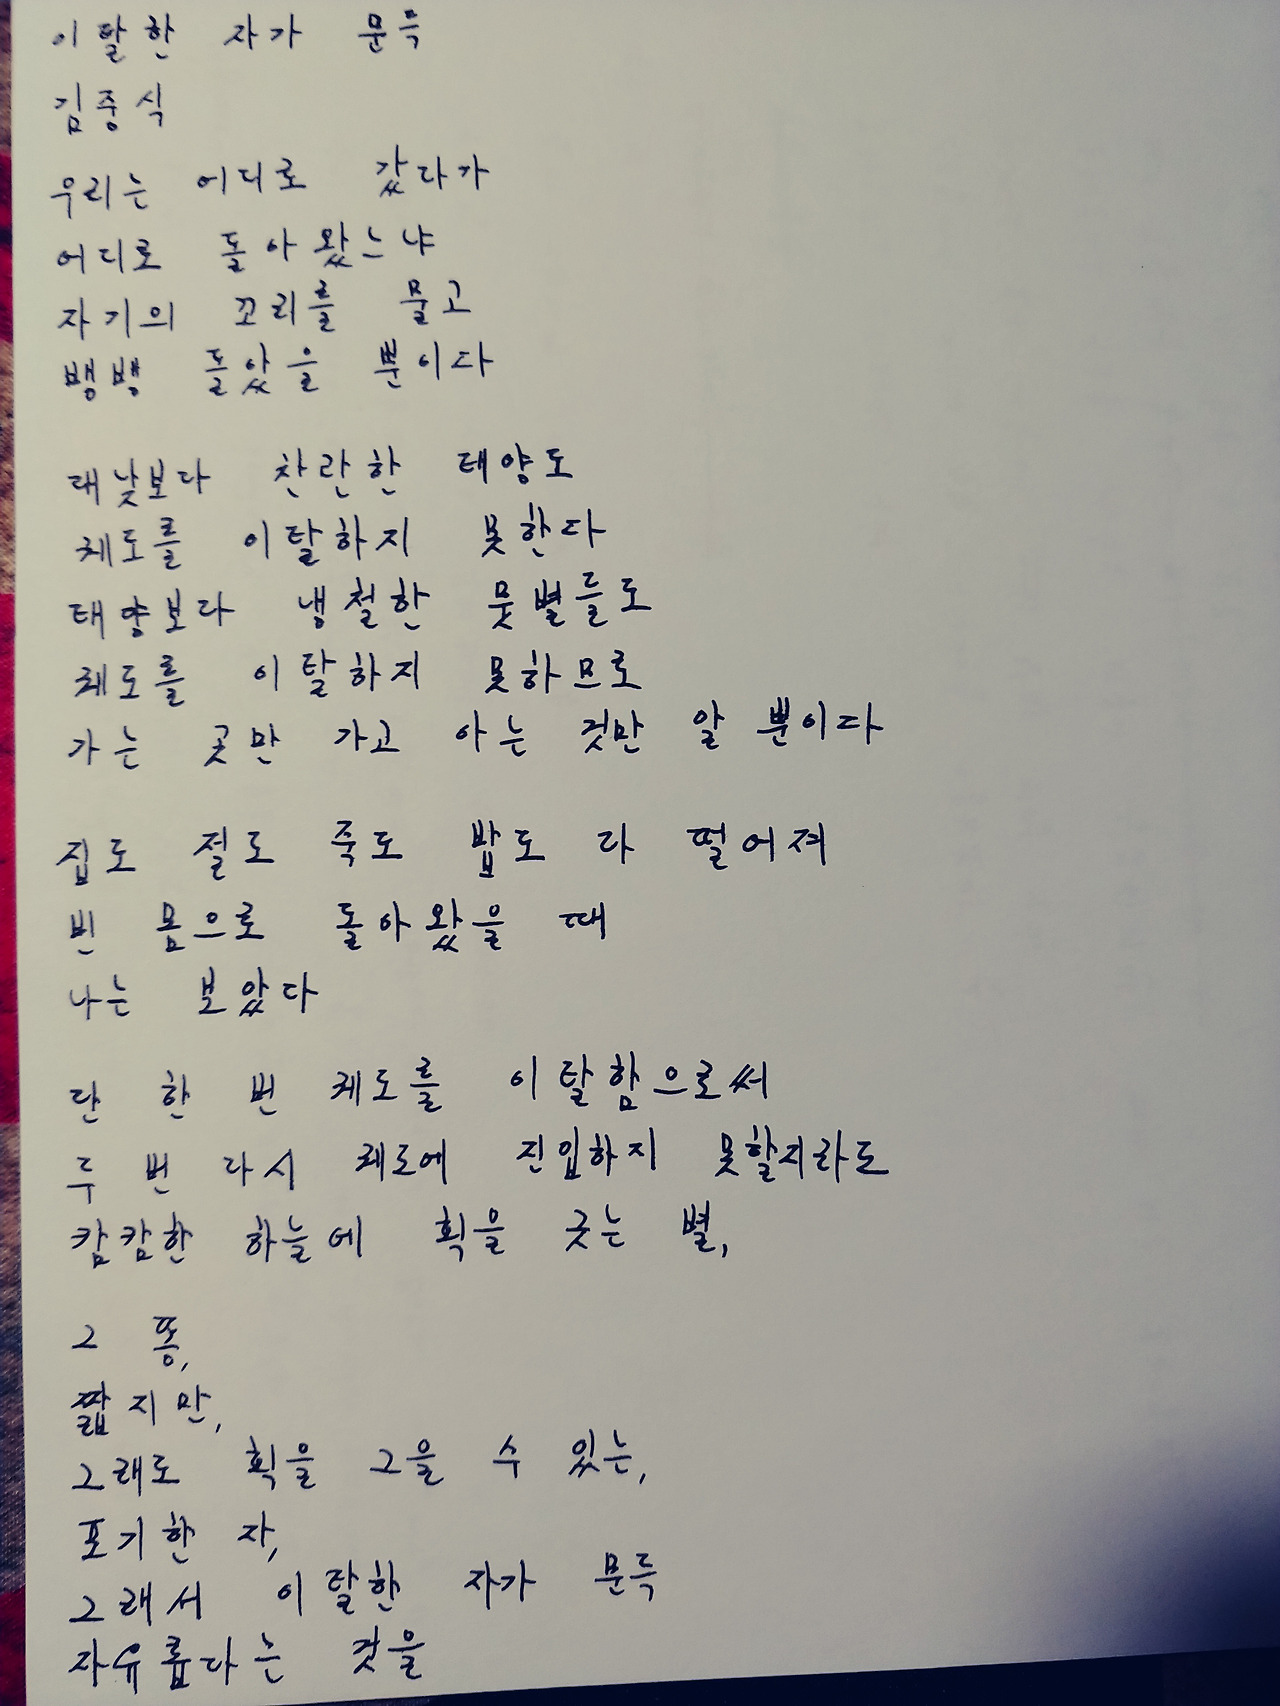 이탈한 자가 문득
김중식
우리는 어디로 갔다가
어디로 돌아왔느냐
자기의 꼬리를 물고
뱅뱅 돌았을 뿐이다
대낮보다 찬란한 태양도
궤도를 이탈하지 못한다
태양보다 냉철한 뭇별들도
궤도를 이탈하지 못하므로
가는 곳만 가고 아는 것만 알 뿐이다
집도 절도 죽도 밥도 다 떨어져
빈 몸으로 돌아왔을 때
나는 보았다
단 한 번 궤도를 이탈함으로써
두 번 다시 궤도에 진입하지 못할지라도
캄캄한 하늘에 획을 긋는 별,
그 똥,
짧지만,
그래도 획을 그을 수 있는,
포기한 자,
그래서 이탈한 자가 문득
자유롭다는 것을